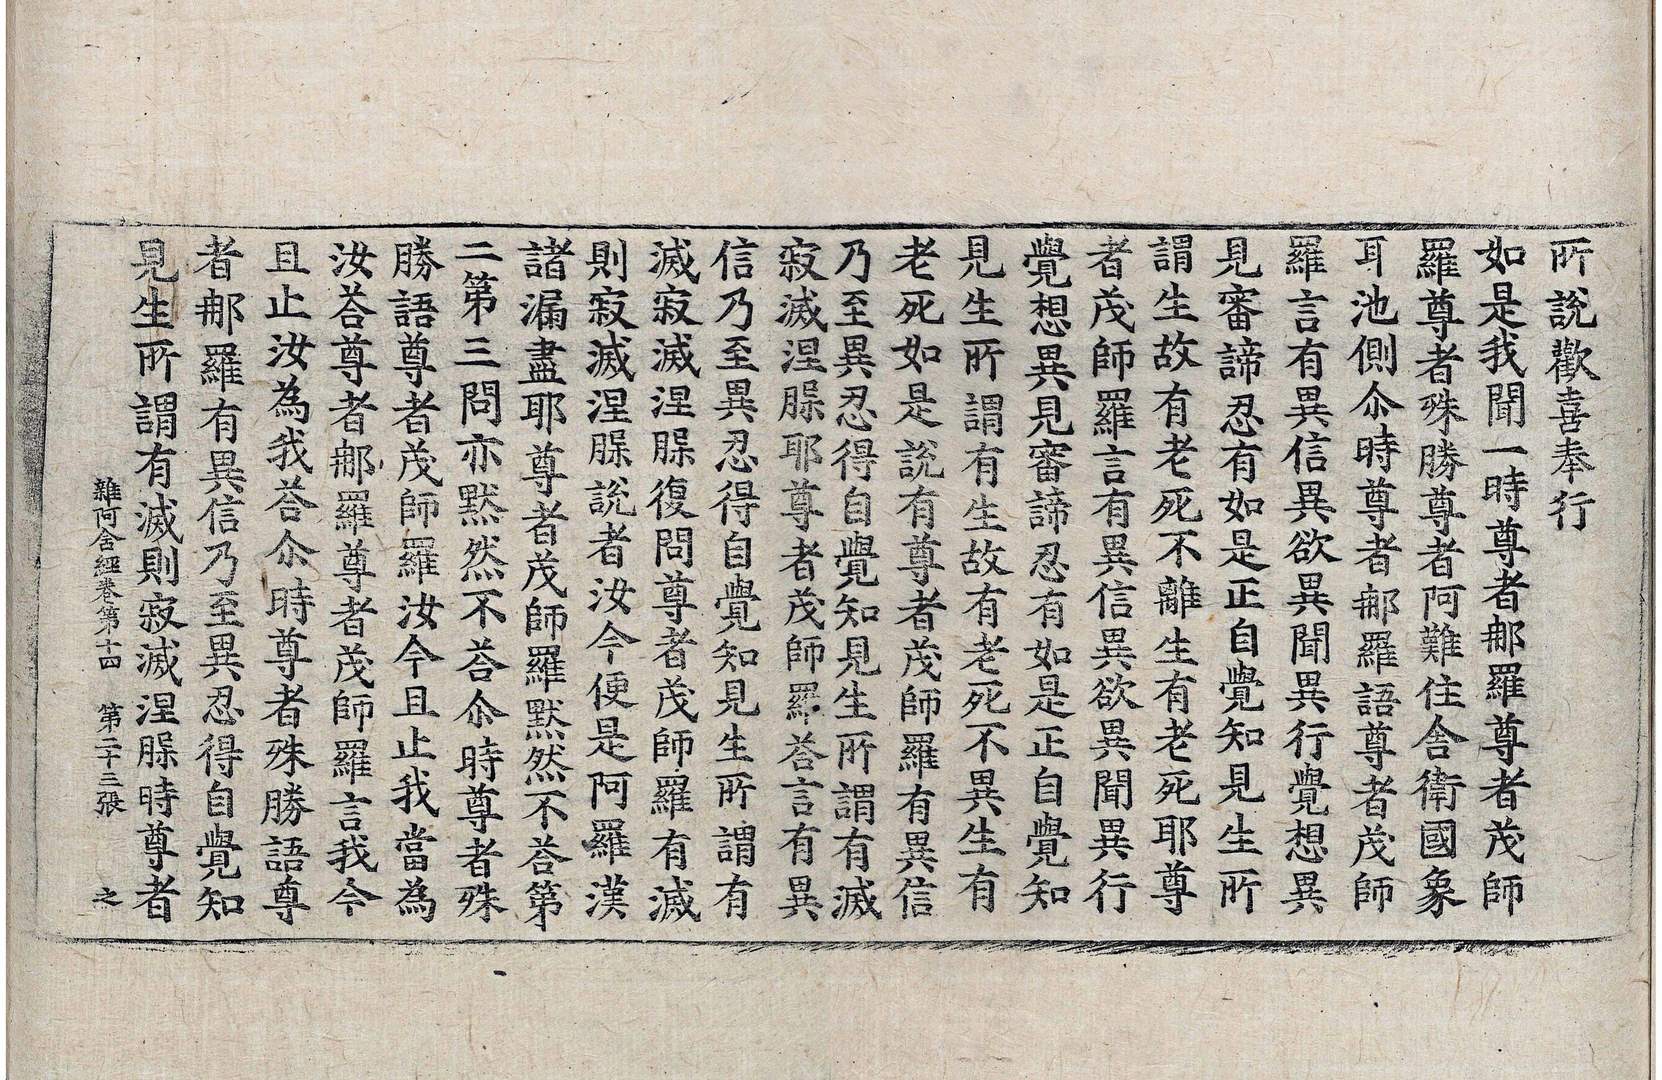 所說歡喜奉行
如是我聞一時尊者郍羅尊者茂師
羅尊者殊勝尊者阿難住舍衛國象
耳池側尒時尊者郍羅語尊者茂師
羅言有異信異欲異聞異行覺想異
見審諦忍有如是正自覺知見生所
謂生故有老死不離生有老死耶尊
者茂師羅言有異信異欲異聞異行
覺想異見審諦忍有如是正自覺知
見生所謂有生故有老死不異生有
老死如是說有尊者茂師羅有異信
乃至異忍得自覺知見生所謂有滅
寂滅涅槃耶尊者茂師羅荅言有異
信乃至異忍得自覺知見生所謂有
滅寂滅涅槃復問尊者茂師羅有滅
則寂滅涅槃說者汝今便是阿羅漢
諸漏盡耶尊者茂師羅默然不荅第
二第三問亦默然不荅尒時尊者殊
勝語尊者茂師羅汝今且止我當為
汝荅尊者郍羅尊者茂師羅言我今
且止汝為我荅尒時尊者殊勝語尊
者郍羅有異信乃至異忍得自覺知
見生所謂有滅則寂滅涅槃時尊者
雜阿含經卷第十四 第二十三張 之